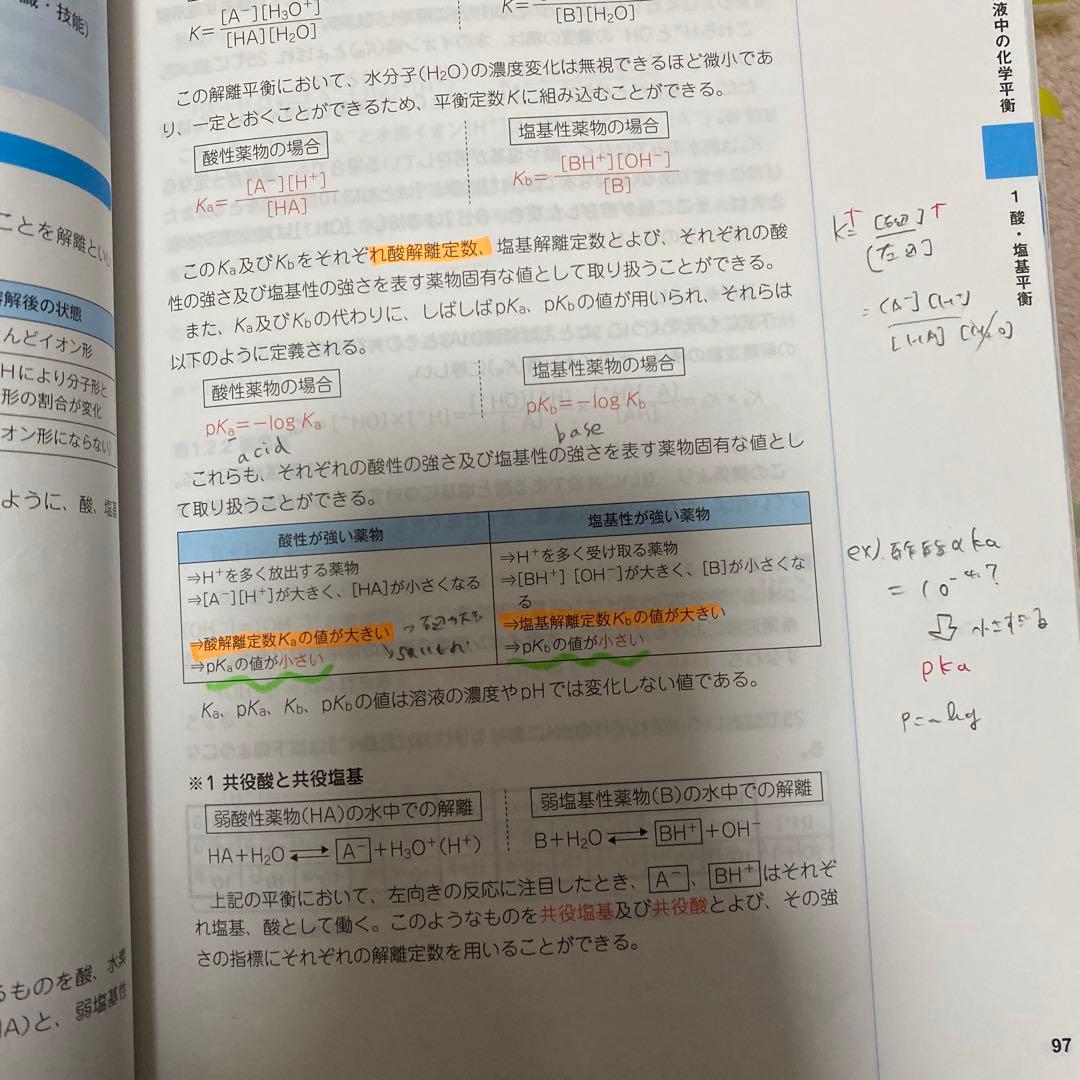 識・技能)
K=[A⁻][H₃O⁺]/[HA][H₂O]
K=/[B][H₂O]
この解離平衡において、水分子(H₂O)の濃度変化は無視できるほど微小であ
り、一定とおくことができるため、平衡定数Kに組み込むことができる。
酸性薬物の場合
塩基性薬物の場合
Ka=[A⁻][H⁺]/[HA]
Kb=[BH⁺][OH⁻]/[B]
このKa及びKbをそれぞれ酸解離定数、塩基解離定数とよび、それぞれの酸
性の強さ及び塩基性の強さを表す薬物固有な値として取り扱うことができる。
また、Ka及びKbの代わりに、しばしばpKa、pKbの値が用いられ、それらは
以下のように定義される。
酸性薬物の場合
塩基性薬物の場合
pKa=−log Ka
pKb=−log Kb
acid
base
これらも、それぞれの酸性の強さ及び塩基性の強さを表す薬物固有な値とし
て取り扱うことができる。
酸性が強い薬物
⇒H⁺を多く放出する薬物
⇒[A⁻][H⁺]が大きく、[HA]が小さくなる
⇒酸解離定数Kaの値が大きい
⇒pKaの値が小さい
塩基性が強い薬物
⇒H⁺を多く受け取る薬物
⇒[BH⁺][OH⁻]が大きく、[B]が小さくな
る
⇒塩基解離定数Kbの値が大きい
⇒pKbの値が小さい
Ka、pKa、Kb、pKbの値は溶液の濃度やpHでは変化しない値である。
※1 共役酸と共役塩基
弱酸性薬物(HA)の水中での解離
弱塩基性薬物(B)の水中での解離
HA+H₂O⇄A⁻+H₃O⁺(H⁺)
B+H₂O⇄BH⁺+OH⁻
上記の平衡において、左向きの反応に注目したとき、A⁻、BH⁺はそれぞ
れ塩基、酸として働く。このようなものを共役塩基及び共役酸とよび、その強
さの指標にそれぞれの解離定数を用いることができる。
ことを解離とい
溶解後の状態
んどイオン形
Hにより分子形と
形の割合が変化
オン形にならない)
ように、酸、塩基
るものを酸、水素
HA)と、弱塩基性
液中の化学平衡
1 酸・塩基平衡
K=[右辺]/[左辺]
=[A⁻][H⁺]/[HA][H₂O]
ex).酢酸のka
=10⁻⁴·⁷
小さすぎる
pka
p=−log
97